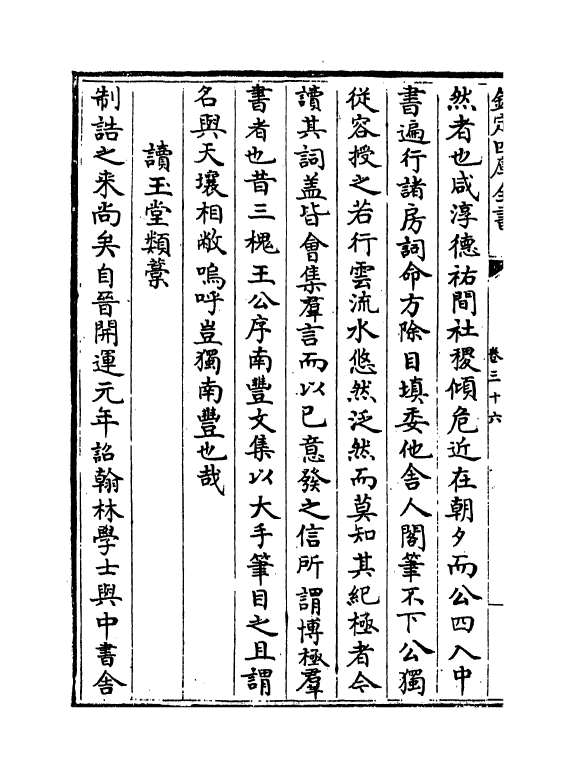 欽定四庫全書
卷三十六
然者也咸淳德祐間社稷傾危近在朝夕而公四入中
書遍行諸房詞命方除目填委他舍人閣筆不下公獨
從容授之若行雲流水悠然泛然而莫知其紀極者今
讀其詞葢皆會集羣言而以已意發之信所謂博極羣
書者也昔三槐王公序南豐文集以大手筆目之且謂
名與天壤相敝嗚呼豈獨南豐也哉
讀玉堂類藁
制誥之来尚矣自晉開運元年詔翰林學士與中書舍